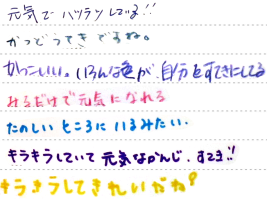 元気で ハツラツしている!!
かつどうてきですね。
かっこいい。いろんな色が、自分をすてきにしてる
みるだけで元気になれる
たのしい ところに いるみたい.
キラキラしていて 元気なかんじ.すてき!!
キラキラしてきれいだね?